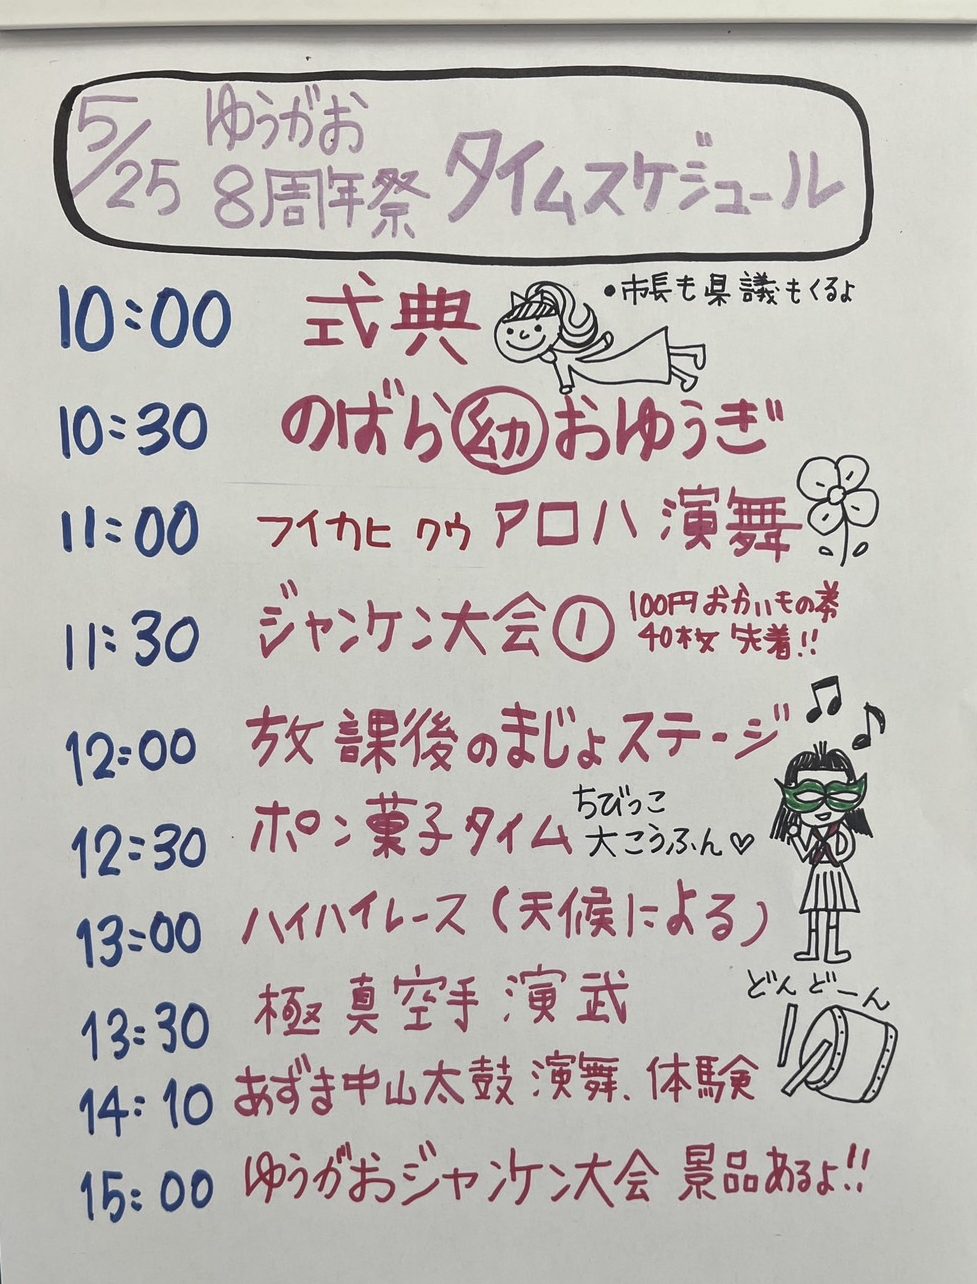 5/25 ゆうがお
8周年祭 タイムスケジュール
10:00 式典 •市長も県議もくるよ
10:30 のばら㊙おゆうぎ
11:00 フイカヒ クウ アロハ 演舞
11:30 ジャンケン大会① 100円おかいもの券
40枚 先着!!
12:00 放課後のまじょステージ
12:30 ポン菓子タイム ちびっこ
大こうふん♡
13:00 ハイハイレース(天候による)
13:30 極真空手 演武
どんどーん
14:10 あずま中山太鼓 演舞、体験
15:00 ゆうがおジャンケン大会 景品あるよ!!